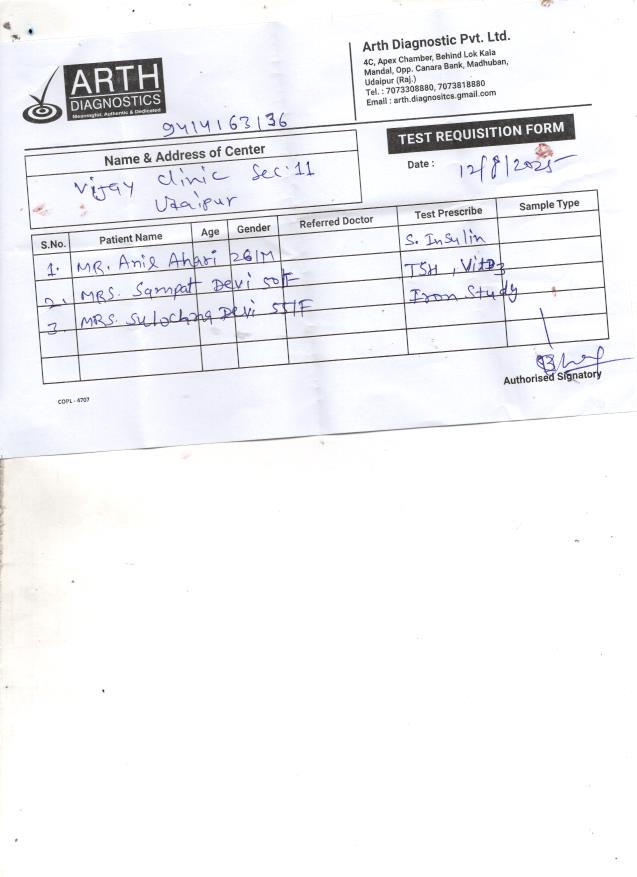 ARTH
DIAGNOSTICS
Meaningful, Authentic & Dedicated
Arth Diagnostic Pvt. Ltd.
4C, Apex Chamber, Behind Lok Kala
Mandal, Opp. Canara Bank, Madhuban,
Udaipur (Raj.)
Tel. : 7073308880, 7073818880
Email : arth.diagnositcs.gmail.com
9414163136
Name & Address of Center
TEST REQUISITION FORM
Vijay Clinic Sec:11
Udaipur
Date : 12/8/2025
S.No. Patient Name Age Gender Referred Doctor Test Prescribe Sample Type
1. MR. Anil Ahari 26/M S. Insulin
2. MRS. Sampat Devi 50/F TSH, VitD3
3. MRS. Sulochana Devi 55/F Iron Study
Authorised Signatory
COPL - 4707